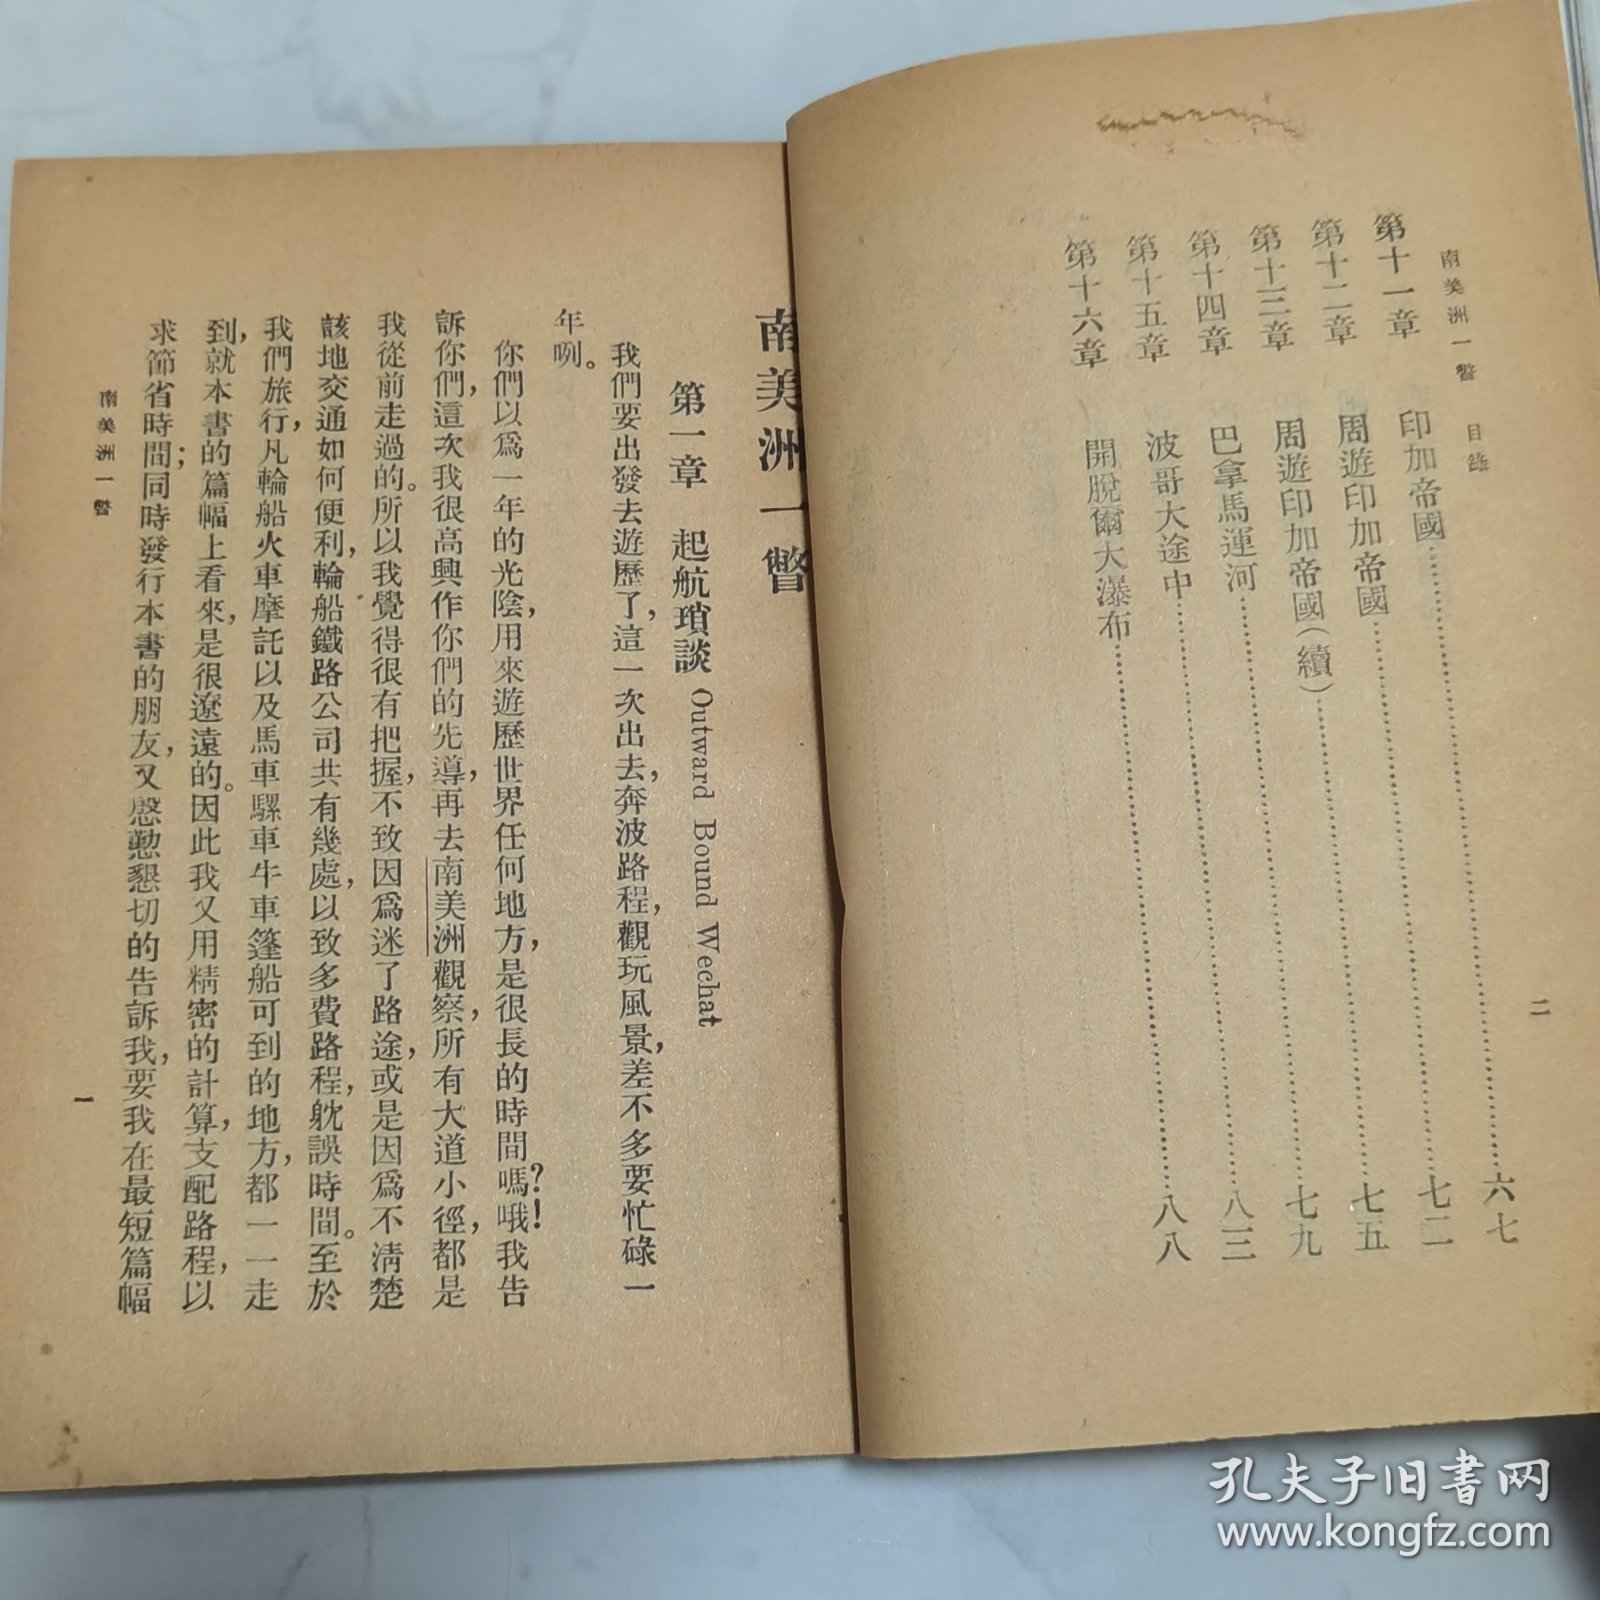 南美洲一瞥 目錄
二
第十一章 印加帝國……六七
第十二章 周遊印加帝國……七二
第十三章 周遊印加帝國(續)……七五
第十四章 巴拿馬運河……七九
第十五章 波哥大途中……八三
第十六章 開脫爾大瀑布……八八
南美洲一瞥
第一章 起航瑣談 Outward Bound Wechat
我們要出發去遊歷了,這一次出去,奔波路程,觀玩風景,差不多要忙碌一
年咧。
你們以爲一年的光陰,用來遊歷世界任何地方,是很長的時間嗎?哦!我告
訴你們,這次我很高興作你們的先導,再去南美洲觀察,所有大道小徑,都是
我從前走過的。所以我覺得很有把握,不致因爲迷了路途,或是因爲不清楚
該地交通如何便利,輪船鐵路公司共有幾處,以致多費路程,躭誤時間。至於
我們旅行,凡輪船火車摩託以及馬車騾車牛車篷船可到的地方,都一一走
到,就本書的篇幅上看來,是很遼遠的。因此我又用精密的計算,支配路程,以
求節省時間;同時發行本書的朋友,又慇懃懇切的告訴我,要我在最短篇幅
南美洲一瞥
一
孔夫子旧书网
www.kongfz.com